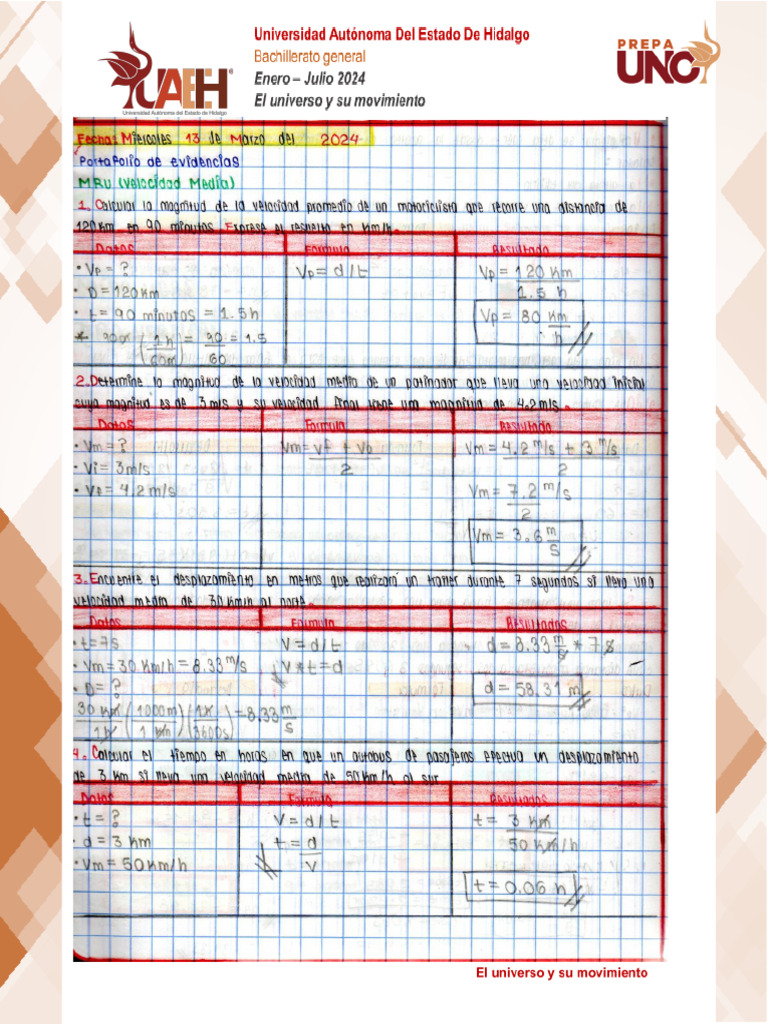 Universidad Autónoma Del Estado De Hidalgo
Bachillerato general
Enero – Julio 2024
El universo y su movimiento
UAEH
Universidad Autónoma del Estado de Hidalgo
PREPA
UNO
Fecha: Miercoles 13 de Marzo del 2024
Portafolio de evidencias
MRU (Velocidad Media)
1. Calcular la magnitud de la velocidad promedio de un motociclista que recorre una distancia de
120 Km en 90 minutos. Exprese el resultado en Km/h.
Datos Formula Resultado
• Vp = ? Vp = d/t Vp = 120 Km
• D = 120 Km 1.5 h
• t = 90 minutos = 1.5 h Vp = 80 Km/h
(1 h / 60m) = 90/60 = 1.5
2. Determine la magnitud de la velocidad media de un patinador que lleva una velocidad inicial
cuya magnitud es de 3 m/s y su velocidad final tiene una magnitud de 4.2 m/s.
Datos Formula Resultado
• Vm = ? Vm = Vf + Vo / 2 Vm = 4.2 m/s + 3 m/s / 2
• Vi = 3 m/s Vm = 7.2 m/s / 2
• Vf = 4.2 m/s Vm = 3.6 m/s
3. Encuentre el desplazamiento en metros que realizará un trailer durante 7 segundos si lleva una
velocidad media de 30 Km/h al norte.
Datos Formula Resultados
• t = 7s V = d/t d = 8.33 m/s * 7s
• Vm = 30 Km/h = 8.33 m/s V * t = d
• D = ? d = 58.31 m
30 Km/1h (1000m/1 km) (1h/3600s) = 8.33 m/s
4. Calcular el tiempo en horas en que un autobus de pasajeros efectua un desplazamiento
de 3 Km si lleva una velocidad media de 50 Km/h al sur
Datos Formula Resultados
• t = ? V = d/t t = 3 Km
• d = 3 Km t = d/V 50 Km/h
• Vm = 50 Km/h t = 0.06 h
El universo y su movimiento